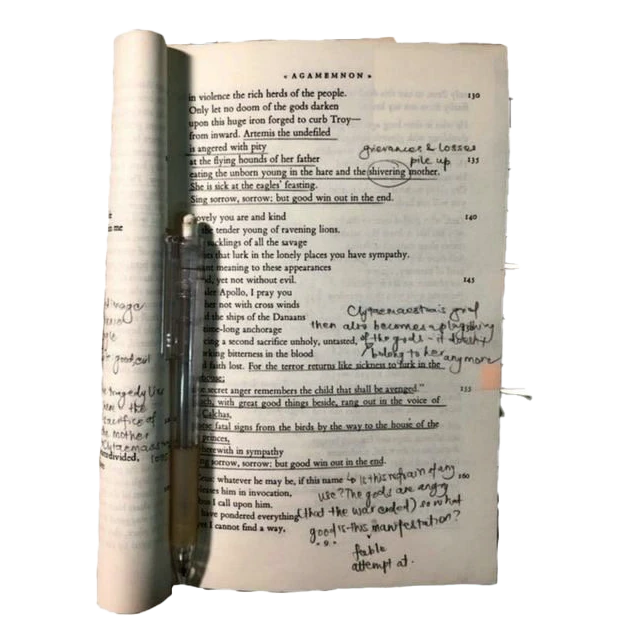 « AGAMEMNON »
in violence the rich herds of the people.
130
Only let no doom of the gods darken
upon this huge iron forged to curb Troy—
from inward. Artemis the undefiled
is angered with pity
grievances & losses
pile up
at the flying hounds of her father
135
eating the unborn young in the hare and the shivering mother.
She is sick at the eagles' feasting.
Sing sorrow, sorrow: but good win out in the end.
ovely you are and kind
140
the tender young of ravening lions.
sucklings of all the savage
that lurk in the lonely places you have sympathy.
meaning to these appearances
yet not without evil.
145
Apollo, I pray you
not with cross winds
the ships of the Danaans
time-long anchorage
a second sacrifice unholy, untasted,
bitterness in the blood
faith lost. For the terror returns like sickness to lurk in the
house;
secret anger remembers the child that shall be avenged."
155
with great good things beside, rang out in the voice of
Calchas,
fatal signs from the birds by the way to the house of the
princes,
wherewith in sympathy
sing sorrow, sorrow: but good win out in the end.
Clytaemnestra's grief
then also becomes a plaything
of the gods - it doesn't
belong to her anymore
whatever he may be, if this name
160
pleases him in invocation,
I call upon him.
have pondered everything
I cannot find a way,
is this refrain of any
use? The gods are angry
(that the war ended) so what
good is this manifestation?
feeble
attempt at.
• 9 •
me
image
good evil
tragedy
the
sacrifice of
the mother
divided,